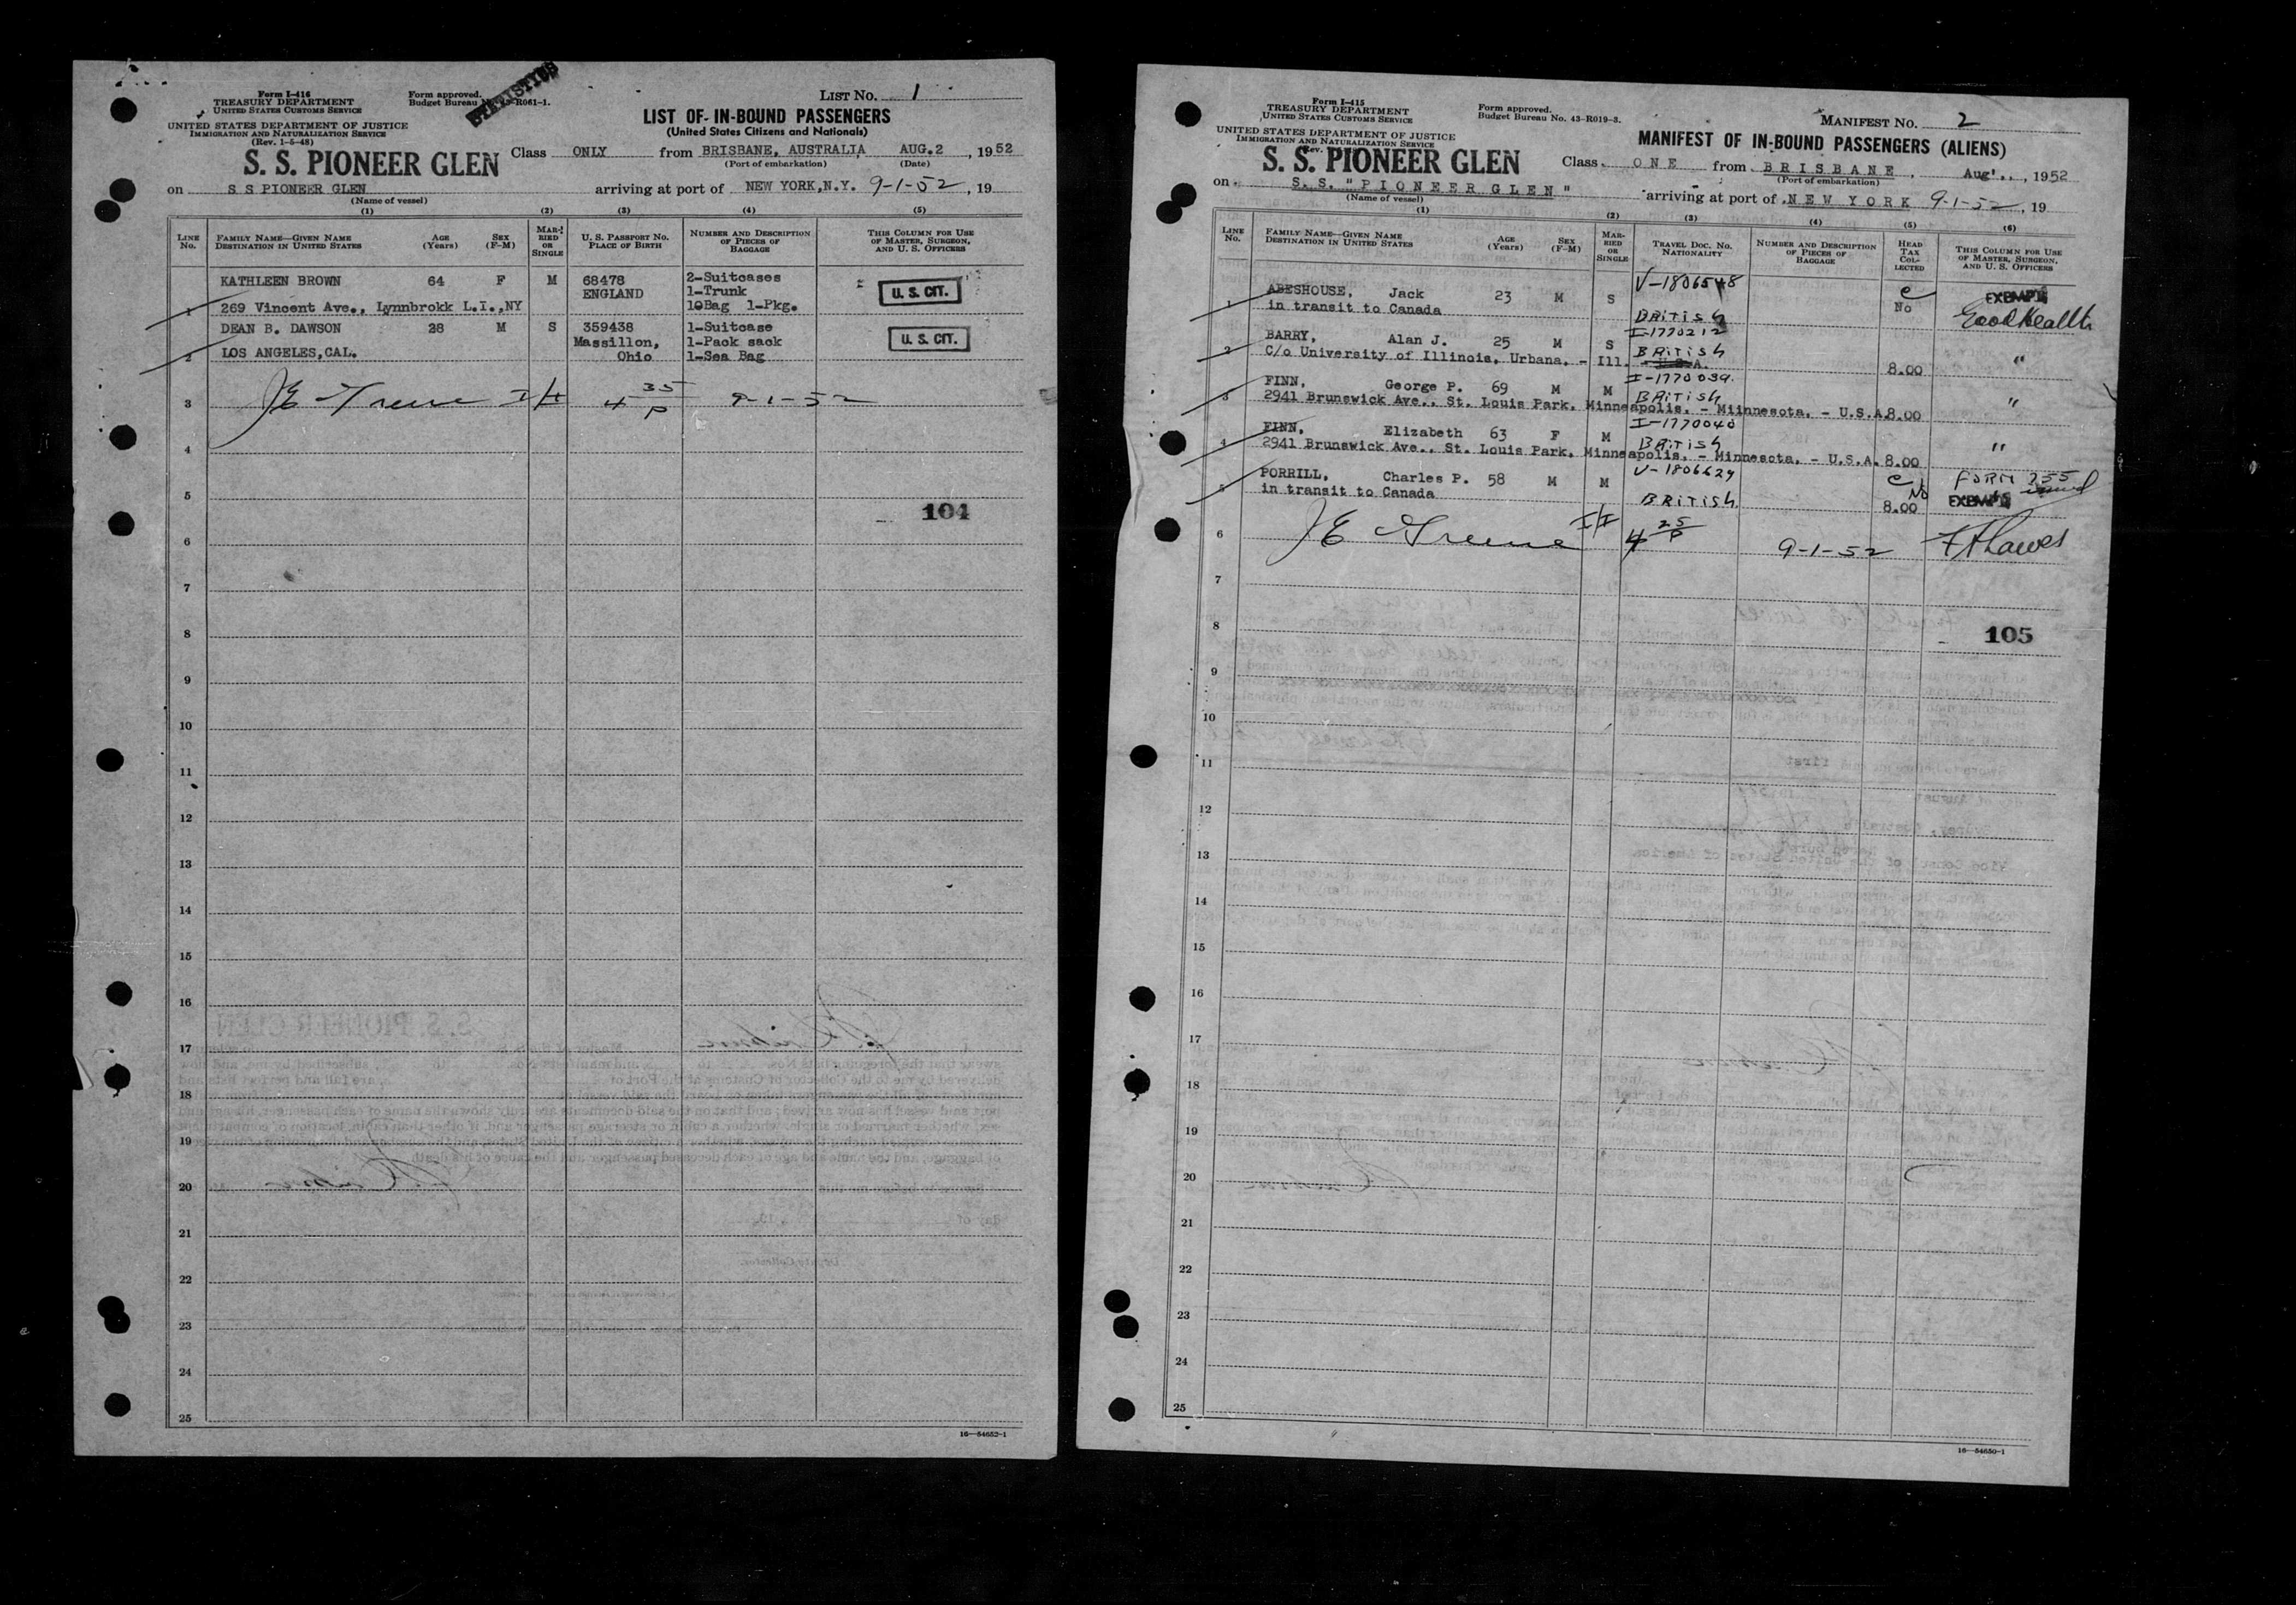 Form I-416
TREASURY DEPARTMENT
UNITED STATES CUSTOMS SERVICE
UNITED STATES DEPARTMENT OF JUSTICE
IMMIGRATION AND NATURALIZATION SERVICE
(Rev. 1-5-48)
Form approved.
Budget Bureau No. 43-R061-1.
STATISTICS
LIST NO. 1
LIST OF IN-BOUND PASSENGERS
(United States Citizens and Nationals)
S. S. PIONEER GLEN
Class ONLY from BRISBANE, AUSTRALIA AUG.2, 1952
(Port of embarkation) (Date)
on S S PIONEER GLEN arriving at port of NEW YORK,N.Y. 9-1-52, 19
(Name of vessel)
(1) (2) (3) (4) (5)
LINE No. FAMILY NAME—GIVEN NAME DESTINATION IN UNITED STATES AGE (Years) SEX (F-M) MARRIED OR SINGLE U. S. PASSPORT NO. PLACE OF BIRTH NUMBER AND DESCRIPTION OF PIECES OF BAGGAGE THIS COLUMN FOR USE OF MASTER, SURGEON, AND U. S. OFFICERS
KATHLEEN BROWN 64 F M 68478 2-Suitcases
ENGLAND 1-Trunk U. S. CIT.
1 269 Vincent Ave., Lynnbrokk L.I.,NY 1@Bag 1-Pkg.
DEAN B. DAWSON 28 M S 359438 1-Suitcase
Massillon, 1-Pack sack U. S. CIT.
2 LOS ANGELES,CAL. Ohio 1-Sea Bag
3 JE Greene I/I 4 35 P 9-1-52
4
5
104
6
7
8
9
10
11
12
13
14
15
16
17
18
19
20
21
22
23
24
25
16—54652-1
Form I-415
TREASURY DEPARTMENT
UNITED STATES CUSTOMS SERVICE
UNITED STATES DEPARTMENT OF JUSTICE
IMMIGRATION AND NATURALIZATION SERVICE
Form approved.
Budget Bureau No. 43-R019-3.
MANIFEST NO. 2
MANIFEST OF IN-BOUND PASSENGERS (ALIENS)
S. S. PIONEER GLEN
Class ONE from BRISBANE, Aug'., 1952
(Port of embarkation)
on S.S. "PIONEER GLEN" arriving at port of NEW YORK 9-1-52, 19
(Name of vessel)
(1) (2) (3) (4) (5) (6)
LINE No. FAMILY NAME—GIVEN NAME DESTINATION IN UNITED STATES AGE (Years) SEX (F-M) MARRIED OR SINGLE TRAVEL DOC. NO. NATIONALITY NUMBER AND DESCRIPTION OF PIECES OF BAGGAGE HEAD TAX COLLECTED THIS COLUMN FOR USE OF MASTER, SURGEON, AND U. S. OFFICERS
V-1806548
ABESHOUSE, Jack 23 M S No EXEMPT
1 in transit to Canada BRITISH Good Health
I-1770212
BARRY, Alan J. 25 M S BRITISH "
2 C/o University of Illinois, Urbana. - Ill. - U.S.A. 8.00
I-1770039
FINN, George P. 69 M M BRITISH "
3 2941 Brunswick Ave., St. Louis Park, Minneapolis. - Miinnesota. - U.S.A. 8.00
I-1770040
FINN, Elizabeth 63 F M BRITISH "
4 2941 Brunswick Ave., St. Louis Park, Minneapolis. - Minnesota. - U.S.A. 8.00
V-1806629
PORRILL, Charles P. 58 M M No FORM 255 issued
5 in transit to Canada BRITISH. 8.00 EXEMPT
6 JE Greene I/I 4 25 P 9-1-52
7
8
105
9
10
11
12
13
14
15
16
17
18
19
20
21
22
23
24
25
16—54650-1